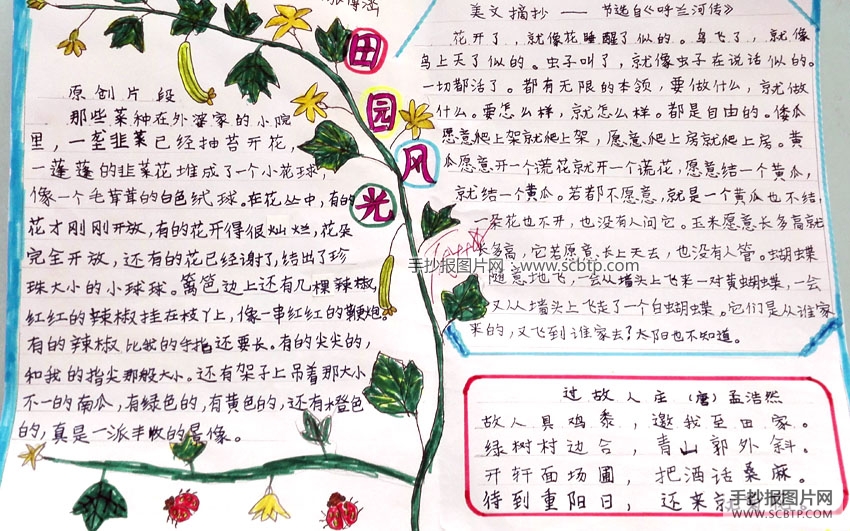 田园风光
原创片段
那些菜种在外婆家的小院
里，一垄韭菜已经抽苔开花，
一蓬蓬的韭菜花堆成了一个小花球，
像一个毛茸茸的白色绒球。在花丛中，有的
花才刚刚开放，有的花开得很灿烂，花朵
完全开放，还有的花已经谢了，结出了珍
珠大小的小球球。篱笆边上还有几棵辣椒，
红红的辣椒挂在枝丫上，像一串红红的鞭炮。
有的辣椒比我的手指还要长。有的尖尖的，
和我的指尖那般大小。还有架子上吊着那大小
不一的南瓜，有绿色的，有黄色的，还有橙色
的，真是一派丰收的景像。
美文摘抄——节选自《呼兰河传》
花开了，就像花睡醒了似的。鸟飞了，就像
鸟上天了似的。虫子叫了，就像虫子在说话似的。
一切都活了。都有无限的本领，要做什么，就做
什么。要怎么样，就怎么样。都是自由的。倭瓜
愿意爬上架就爬上架，愿意爬上房就爬上房。黄
瓜愿意开一个谎花就开一个谎花，愿意结一个黄瓜，
就结一个黄瓜。若都不愿意，就是一个黄瓜也不结，
一朵花也不开，也没有人问它。玉米愿意长多高就
长多高，它若愿意长上天去，也没有人管。蝴蝶
随意地飞，一会从墙头上飞来一对黄蝴蝶，一会
又从墙头上飞走了一个白蝴蝶。它们是从谁家
来的，又飞到谁家去？太阳也不知道。
手抄报图片网：www.scbtp.com
过故人庄（唐）孟浩然
故人具鸡黍，邀我至田家。
绿树村边合，青山郭外斜。
开轩面场圃，把酒话桑麻。
待到重阳日，还来
手抄报图片网
WWW.SCBTP.COM